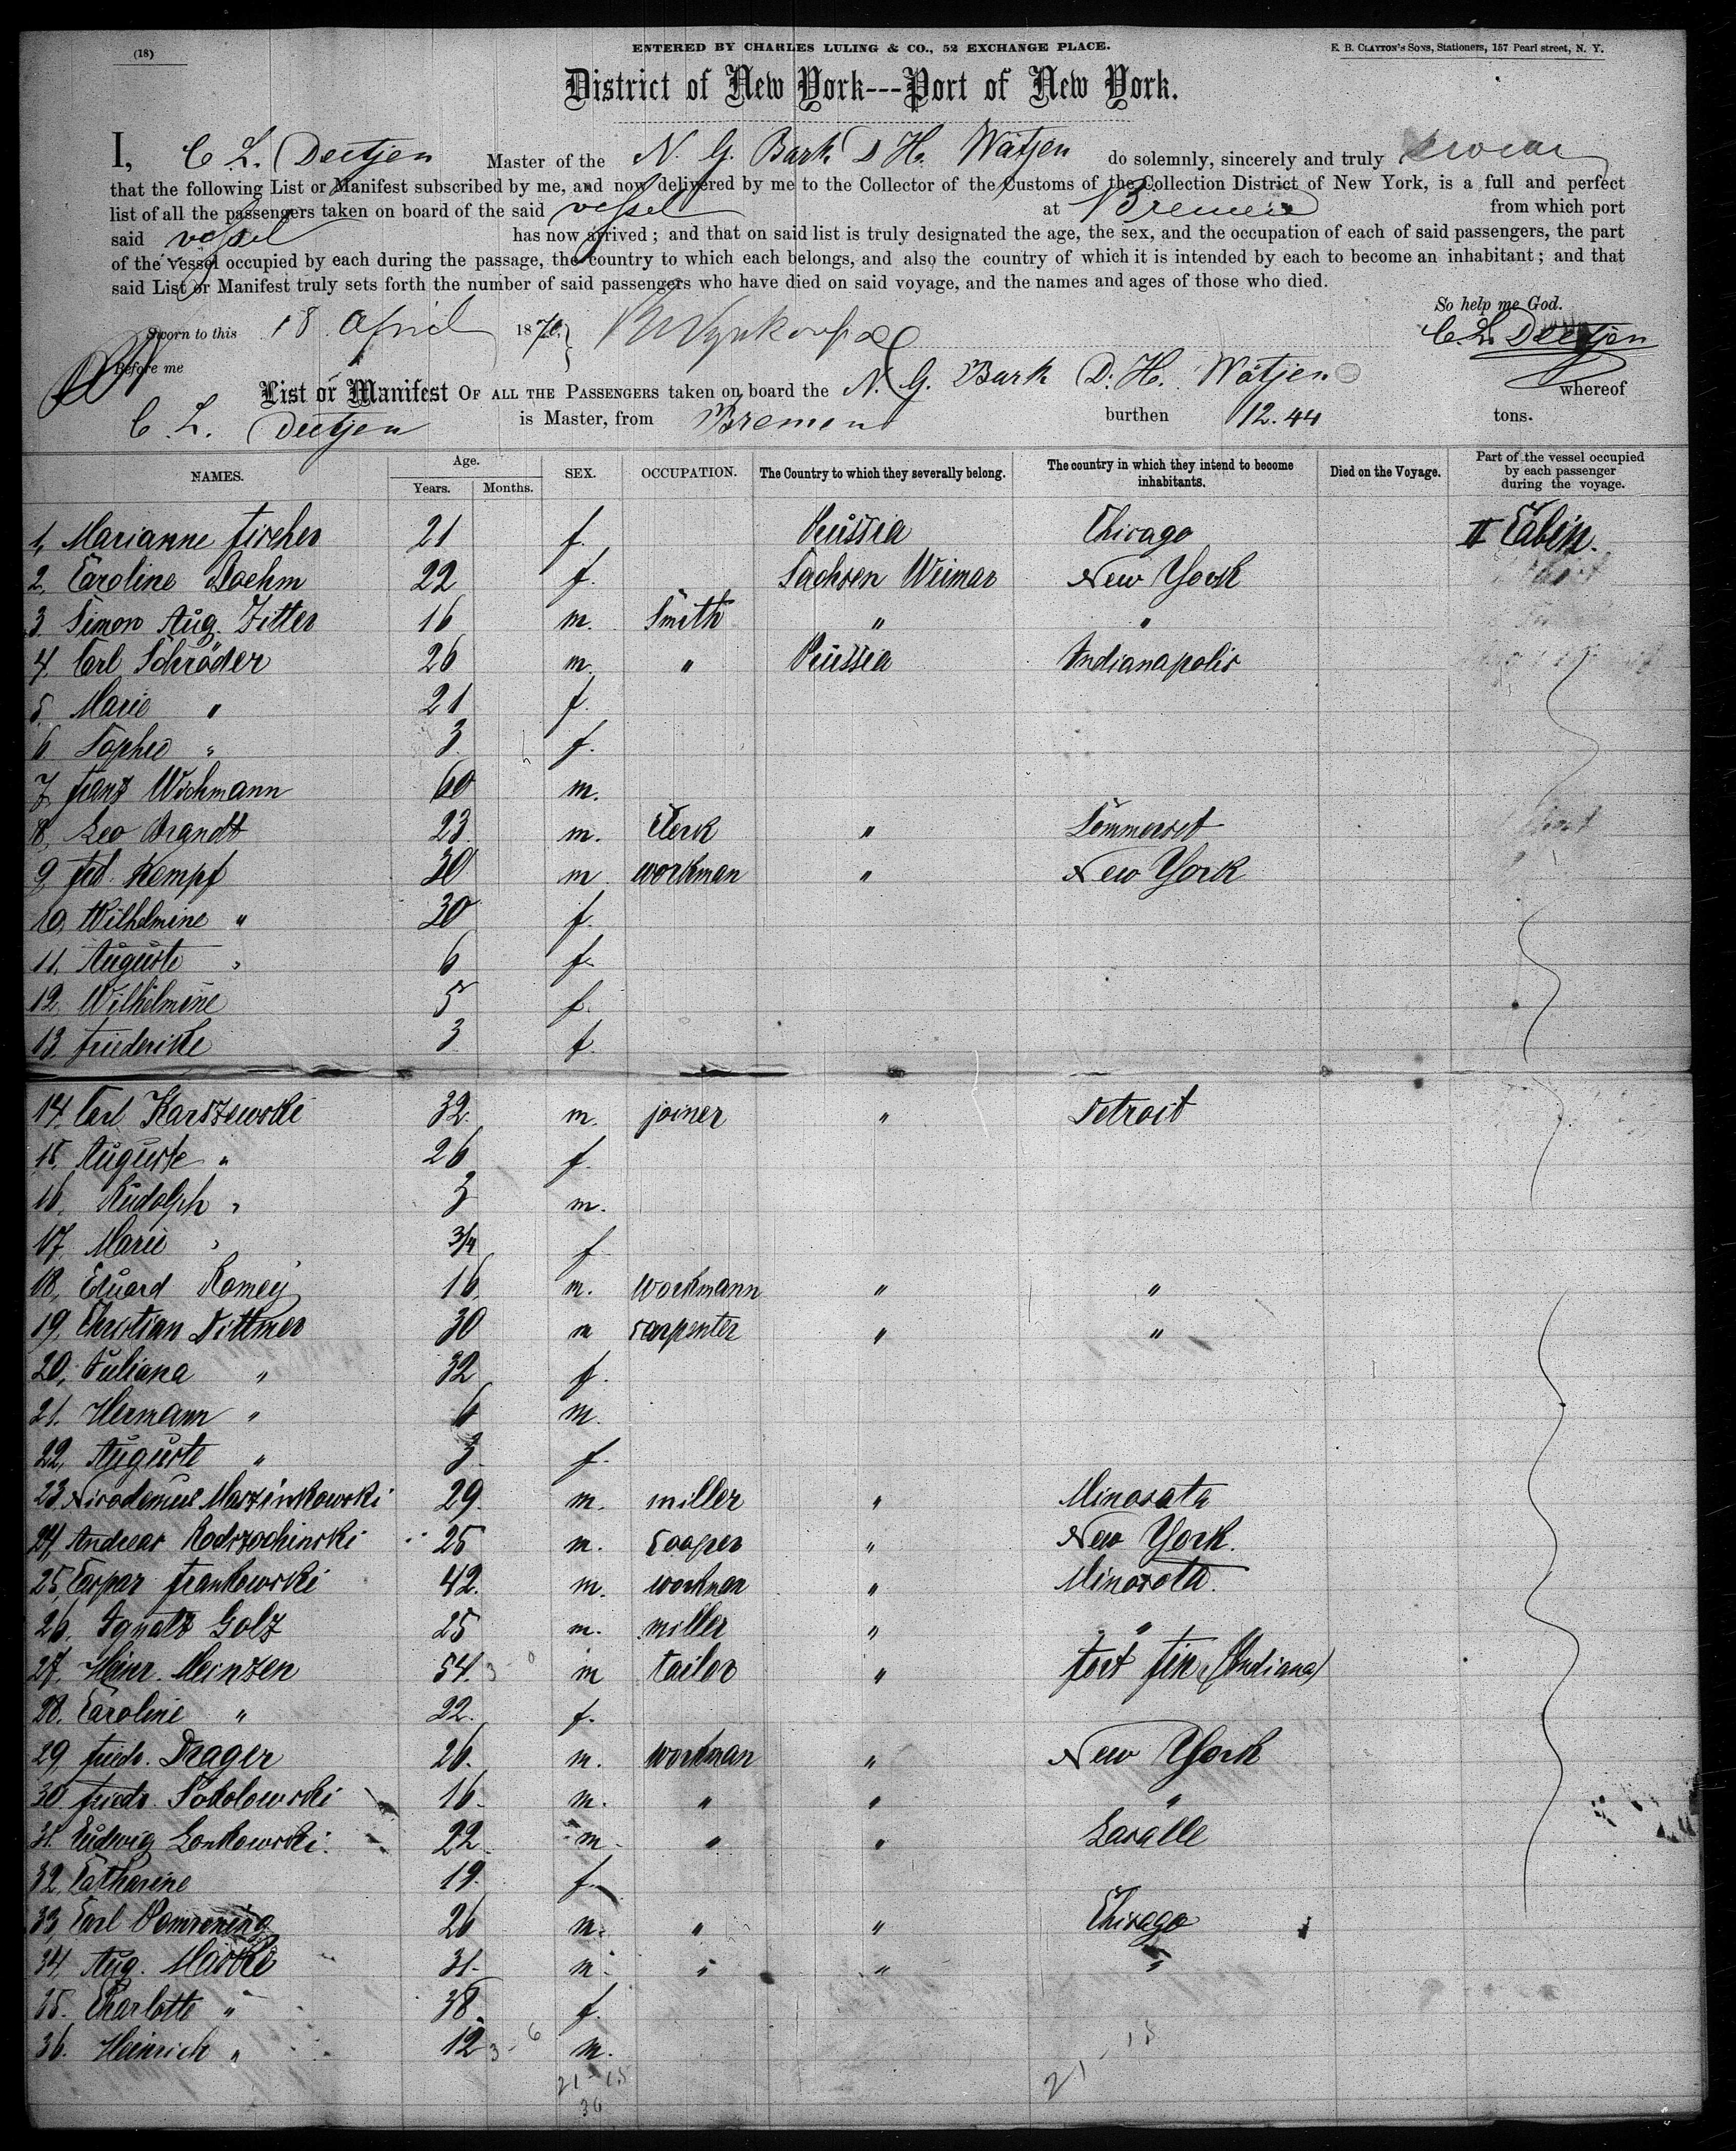 (18)
ENTERED BY CHARLES LULING & CO., 52 EXCHANGE PLACE.
E. B. CLAYTON'S SONS, Stationers, 157 Pearl street, N. Y.
District of New York---Port of New York.
I, C L. Deetjen Master of the N. G. Bark D H. Wätjen do solemnly, sincerely and truly swear
that the following List or Manifest subscribed by me, and now delivered by me to the Collector of the Customs of the Collection District of New York, is a full and perfect
list of all the passengers taken on board of the said vessel at Bremen from which port
said vessel has now arrived; and that on said list is truly designated the age, the sex, and the occupation of each of said passengers, the part
of the vessel occupied by each during the passage, the country to which each belongs, and also the country of which it is intended by each to become an inhabitant; and that
said List or Manifest truly sets forth the number of said passengers who have died on said voyage, and the names and ages of those who died.
So help me God.
Sworn to this 18 April 1870
C. L. Deetjen
Before me
List or Manifest OF ALL THE PASSENGERS taken on board the N. G. Bark D. H. Wätjen whereof
C. L. Deetjen is Master, from Bremen burthen 12.44 tons.
NAMES. Age. Years. Months. SEX. OCCUPATION. The Country to which they severally belong. The country in which they intend to become inhabitants. Died on the Voyage. Part of the vessel occupied by each passenger during the voyage.
1, Marianne Fischer 21 f. Prussia Chicago II Cabin.
2, Caroline Boehm 22 f. Sachsen Weimar New York
3. Simon Aug. Zitter 16 m. Smith " "
4. Carl Schröder 26 m. " Prussia Indianapolis
5. Marie " 21 f.
6. Sophie " 3. f.
7. Franz Wichmann 60 m.
8. Leo Brandt 23. m. Clerk " Sommerset
9, Fed. Kempf 30 m. workman " New York
10, Wilhelmine " 30 f.
11. Auguste " 6 f.
12, Wilhelmine 5 f.
13. Friederike 3 f.
14. Carl Karszewski 32. m. joiner " Detroit
15. Auguste " 26 f.
16. Rudolph " 3 m.
17. Marie " 3/4 f.
18, Eduard Romey 16, m. workmann " "
19, Christian Dittmer 30 m carpenter " "
20, Juliana " 32 f.
21. Hermann " 6 m.
22, Auguste " 3. f.
23. Nicodemus Marzinkowski 29. m. miller " Minosata
24, Andreas 25 m. cooper " New York.
25, Caspar Frankowski 42. m. workman " Minosota.
26, Ignatz Golz 25 m. miller " "
27. Heinr. Meinzen 54. m tailor " (Indiana)
28. Caroline " 22. f.
29, Friedr. Drager 26. m. workman " New York
30. Friedr. Sokolowski 16. m. " " "
31. Ludwig Lonkowski. 22. m. " " Lasalle
32, Catharine 19. f.
33, Carl 26 m. " " Chicago
34, Aug. 31. m. " " "
35. Charlotte " 38. f.
36. Heinrich " 12 m.
21 - 15
36
21 - 15